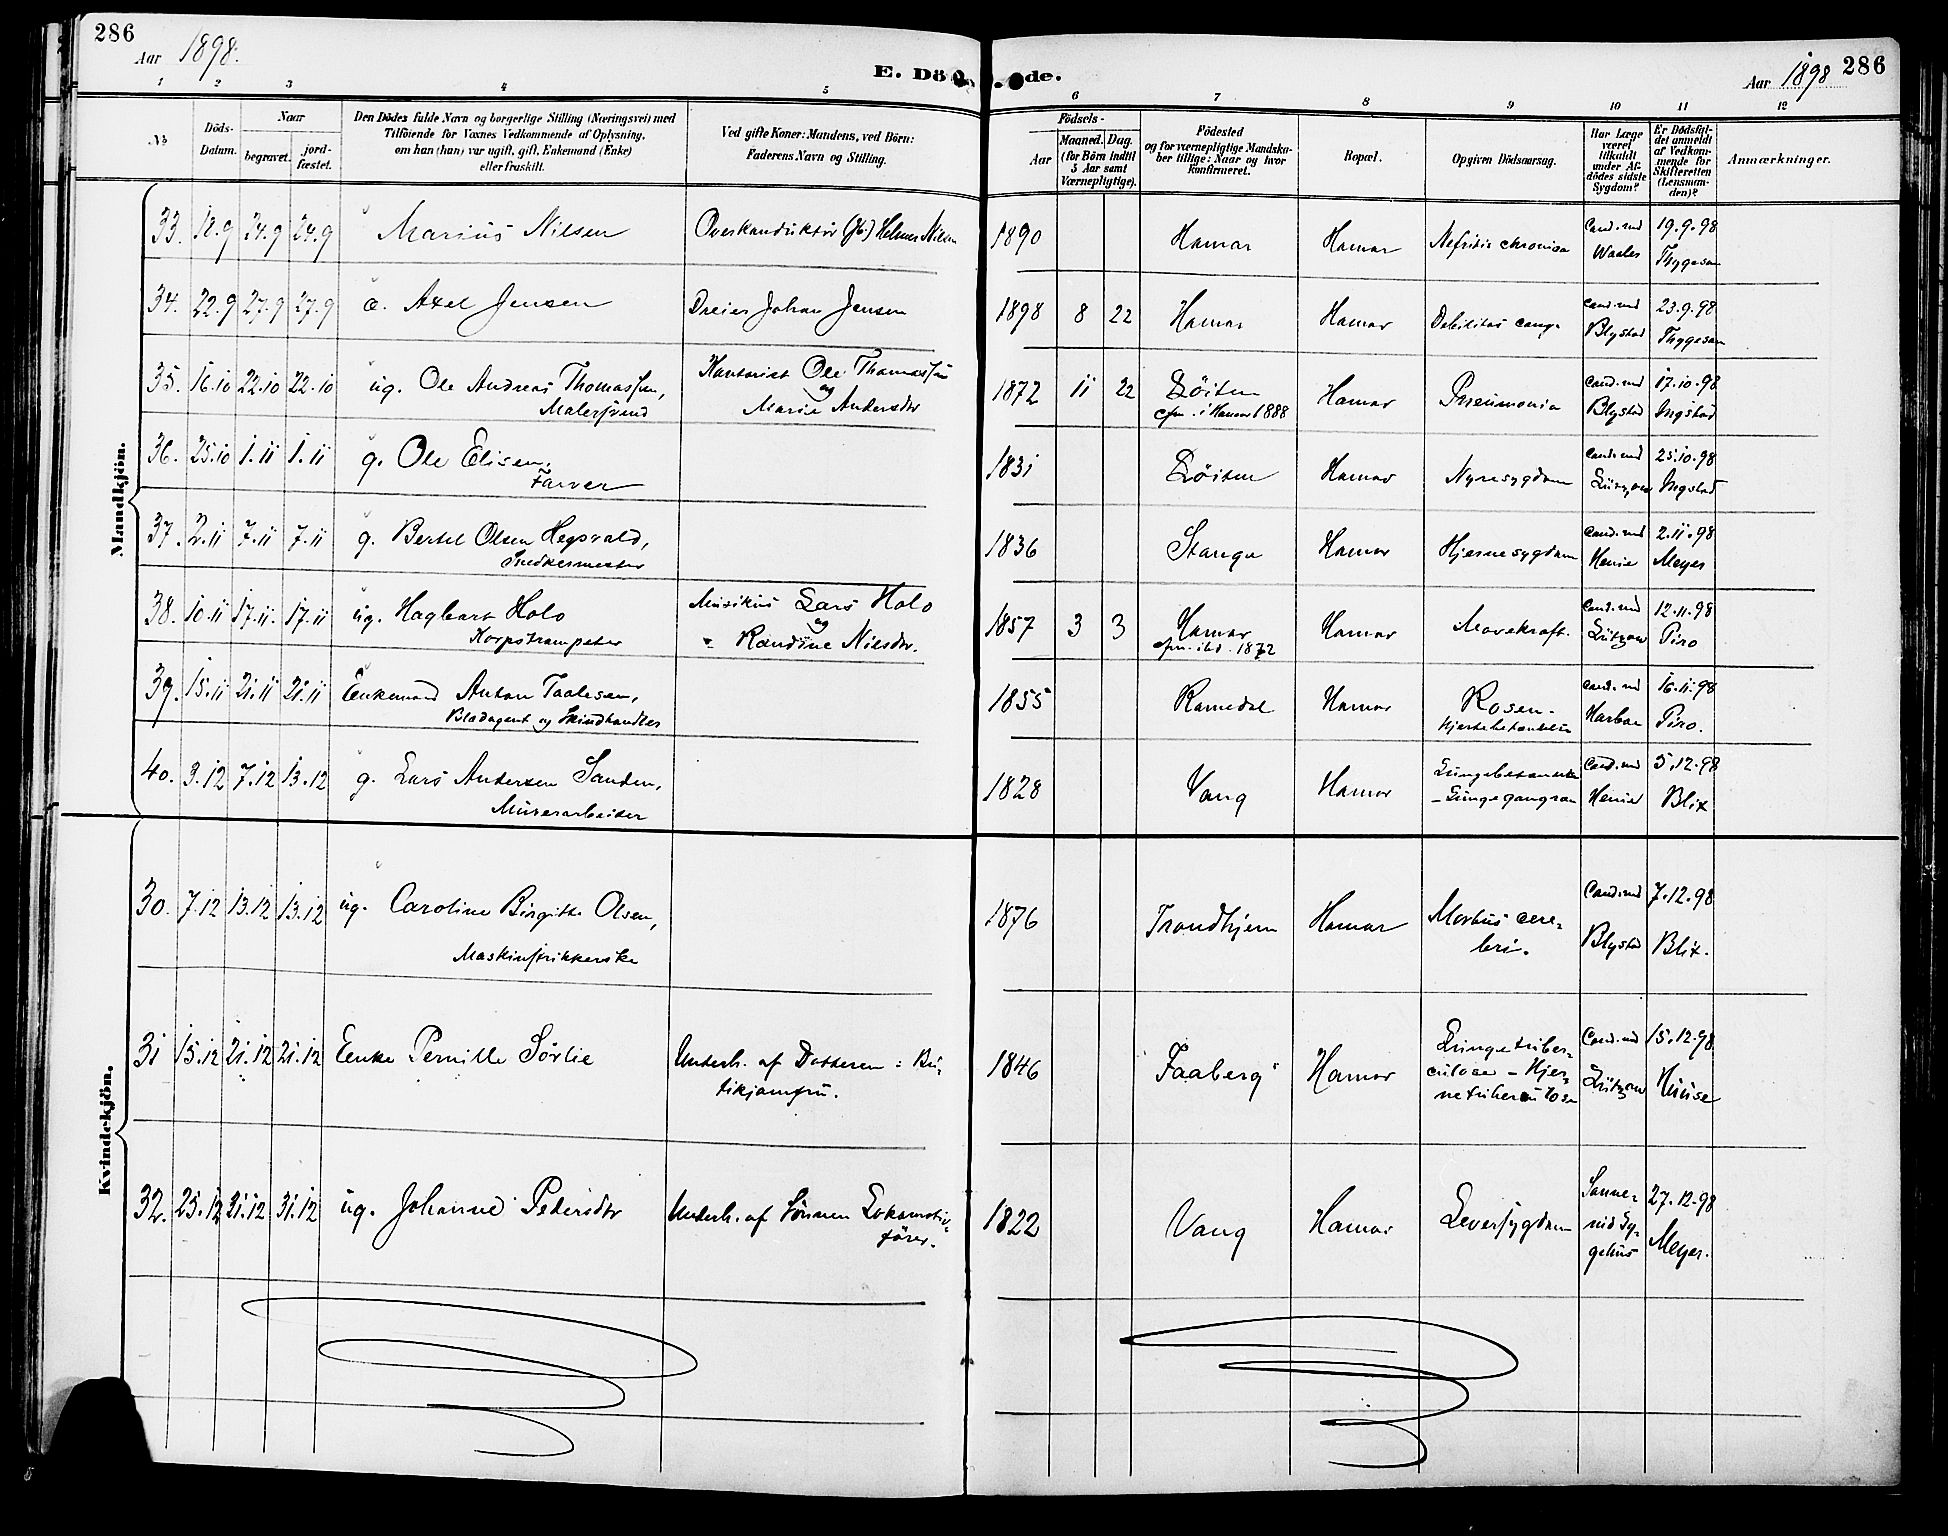 286
Aar 1898.
E. Döde.
Aar 1898 286
1 2 3 4 5 6 7 8 9 10 11 12
№
Döds-
Datum.
Naar
begravet.
jord-
fæstet.
Den Dödes fulde Navn og borgerlige Stilling (Næringsvei) med
Tilföiende for Voxnes Vedkommende af Oplysning,
om han (hun) var ugift, gift, Enkemand (Enke)
eller fraskilt.
Ved gifte Koner: Mandens, ved Börn:
Faderens Navn og Stilling.
Födsels-
Aar
Maaned. Dag.
(for Börn indtil
5 Aar samt
Værnepligtige).
Födested
og for værnepligtige Mandska-
ber tillige: Naar og hvor
konfirmeret.
Bopæl.
Opgiven Dödsaarsag.
Har Læge
været
tilkaldt
under Af-
dödes sidste
Sygdom?
Er Dödsfal-
det anmeldt
af Vedkom-
mende for
Skifteretten
(Lensman-
den)?
Anmærkninger.
Mandkjön.
33. 18.9 24.9 24.9 Marius Nilsen Overkonduktör Helmer Nilsen 1890 Hamar Hamar Nefritis chronica Cand. md Waaler 19.9.98 Thygesen
34. 22.9 27.9 27.9 Axel Jensen Dreier Johan Jensen 1898 8 22 Hamar Hamar Debilitas cong. Cand. md Blystad 23.9.98 Thygesen
35. 16.10 22.10 22.10 ug. Ole Andreas Thomassen,
Malersvend
Kontorist Ole Thomassen
og
Marie Andersdtr
1872 11 22 Löiten
cfm. i Hamar 1888
Hamar Pneumonia Cand. md Blystad 17.10.98 Ingstad
36. 25.10 1.11 1.11 g. Ole Elisen,
Farver
1831 Löiten Hamar Nyresygdom Cand. md Lützow 25.10.98 Ingstad
37. 2.11 7.11 7.11 g. Bertel Olsen Hegsvold,
Snedkermester
1836 Stange Hamar Hjernesygdom Cand. md Henie 2.11.98 Meyer
38. 10.11 17.11. 17.11 ug. Hagbart Holo
Korpstrompeter
Musikus Lars Holo
og
Randine Nilsdtr.
1857 3 3 Hamar
cfm. ibd. 1872
Hamar Mavekræft. Cand. md Lützow 12.11.98 Piro
39. 15.11 21.11 21.11 Enkemand Anton Taalesen,
Bladagent og Skindhandler
1855 Romedal Hamar Rosen-
Hjertebetændelse
Cand. md Harboe 16.11.98 Piro.
40. 3.12 7.12 13.12 g. Lars Andersen Sanden,
Murerarbeider
1828 Vang Hamar Lungebetændelse
- Lungegangræn
Cand. md Henie 5.12.98 Blix
Kvindekjön.
30. 7.12 13.12 13.12 ug. Caroline Birgitte Olsen,
Maskinstrikkerske
1876 Trondhjem Hamar Morbus cere-
bri.
Cand. md Blystad 7.12.98 Blix.
31 15.12 21.12 21.12 Enke Pernille Sörlie
Underh. af Datteren: Bu-
tikjomfru.
1846 Faaberg Hamar Lungetuber-
culose - Hjer-
netuberculose
Cand. md Lützow 15.12.98 Huuse
32. 25.12 31.12 31.12 ug. Johanne Pedersdtr
Underh. af Sönnen Lokomotiv-
förer.
1822 Vang Hamar Leversygdom
Sanne-
rud Sy-
gehus
27.12.98 Meyer.